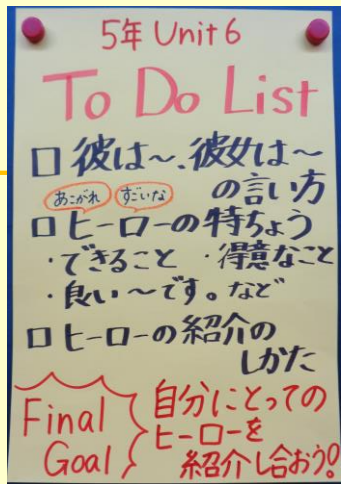 5年 Unit 6
To Do List
□ 彼は〜、彼女は〜
の言い方
あこがれ すごいな
□ ヒーローの特ちょう
・できること ・得意なこと
・良い〜です。など
□ ヒーローの紹介の
しかた
Final Goal
自分にとっての
ヒーローを
紹介し合おう!